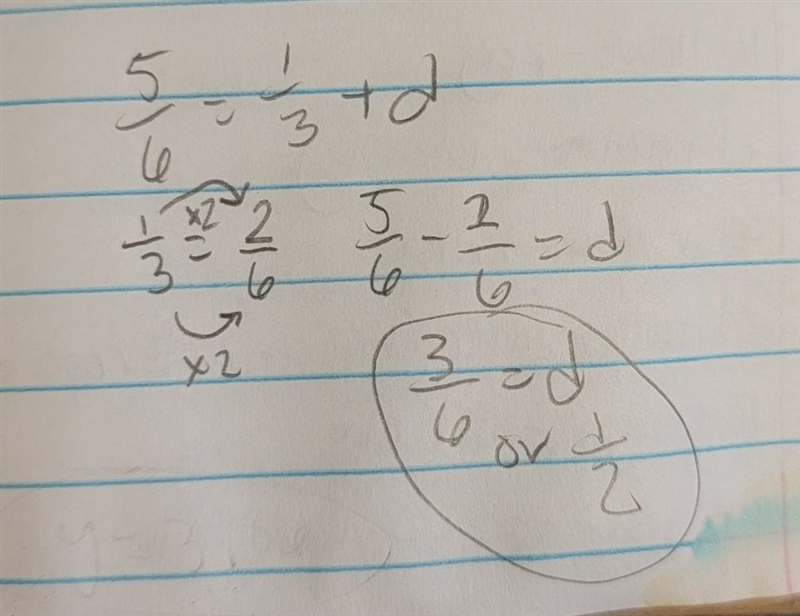 5/6 = 1/3 + d
1/3 = 2/6
×2
×2
5/6 - 2/6 = d
3/6 = d
or 1/2